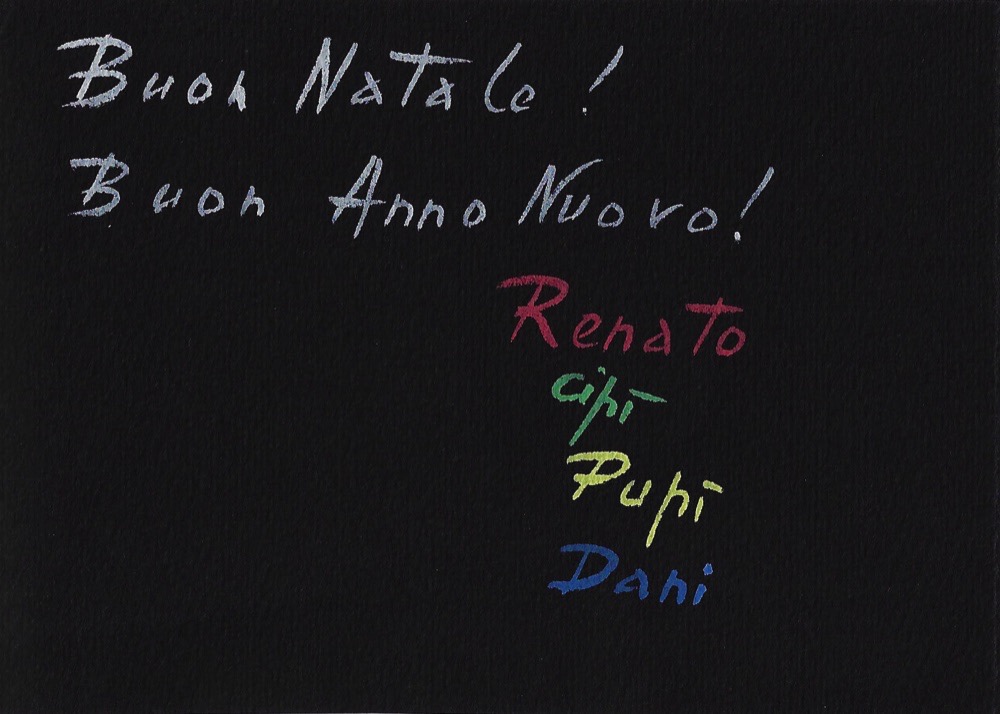 Buon Natale!
Buon Anno Nuovo!
Renato
Cipi
Pupi
Dani